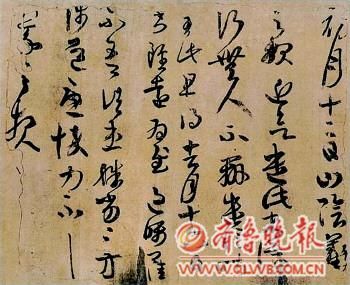 初月十二日山陰羲
之報近欲遣此書
行無人不辦遣
至此且得去月十
書雖遠為慰過囑
不吾諸患殊劣劣方
涉道憂悴力不一一
羲之報
齐鲁晚报
WWW.QLWB.COM.CN